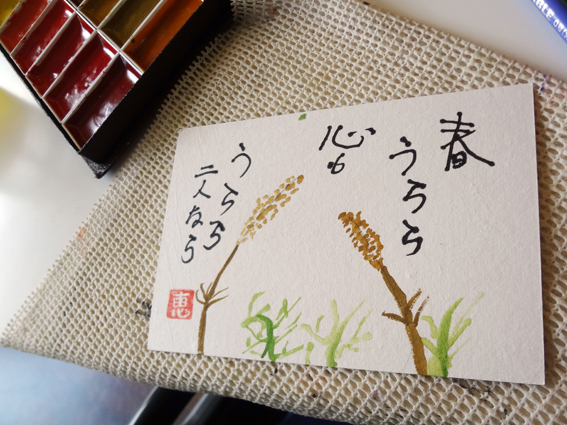 春
うらら
心も
うらら
二人なら
恵